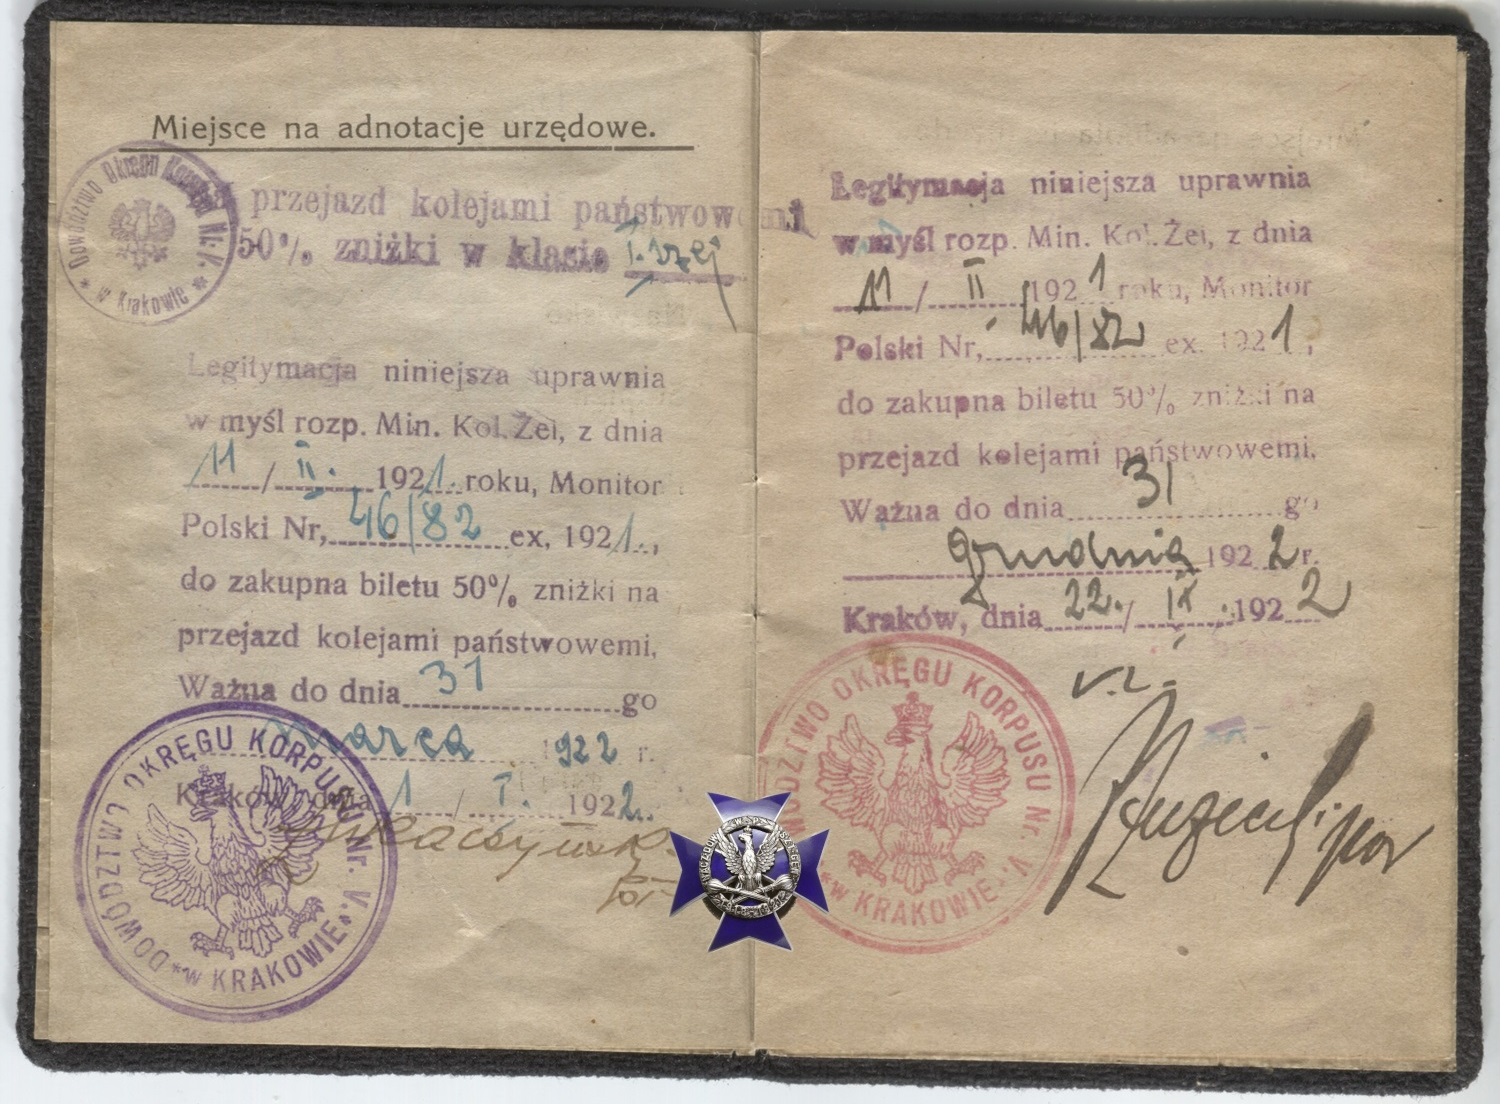 Miejsce na adnotacje urzędowe.
Dowództwo Okręgu Korpusu Nr. V.
* w Krakowie *
przejazd kolejami państwowemi
50% zniżki w klasie I.szej
Legitymacja niniejsza uprawnia
w myśl rozp. Min. Kol. Żel, z dnia
11/II. 1921. roku, Monitor
Polski Nr, 46/82 ex, 1921.,
do zakupna biletu 50% zniżki na
przejazd kolejami państwowemi,
Ważna do dnia 31 go
marca 1922 r.
Kraków, dnia 1/I. 1922.
DOWÓDZTWO OKRĘGU KORPUSU Nr. V.
* w KRAKOWIE *
Legitymacja niniejsza uprawnia
w myśl rozp. Min. Kol. Żel, z dnia
11/II 1921 roku, Monitor
Polski Nr, 46/82 ex. 1921,
do zakupna biletu 50% zniżki na
przejazd kolejami państwowemi.
Ważna do dnia 31 go
grudnia 1922 r.
Kraków, dnia 22./IX. 1922
DOWÓDZTWO OKRĘGU KORPUSU Nr. V.
* w KRAKOWIE *
por